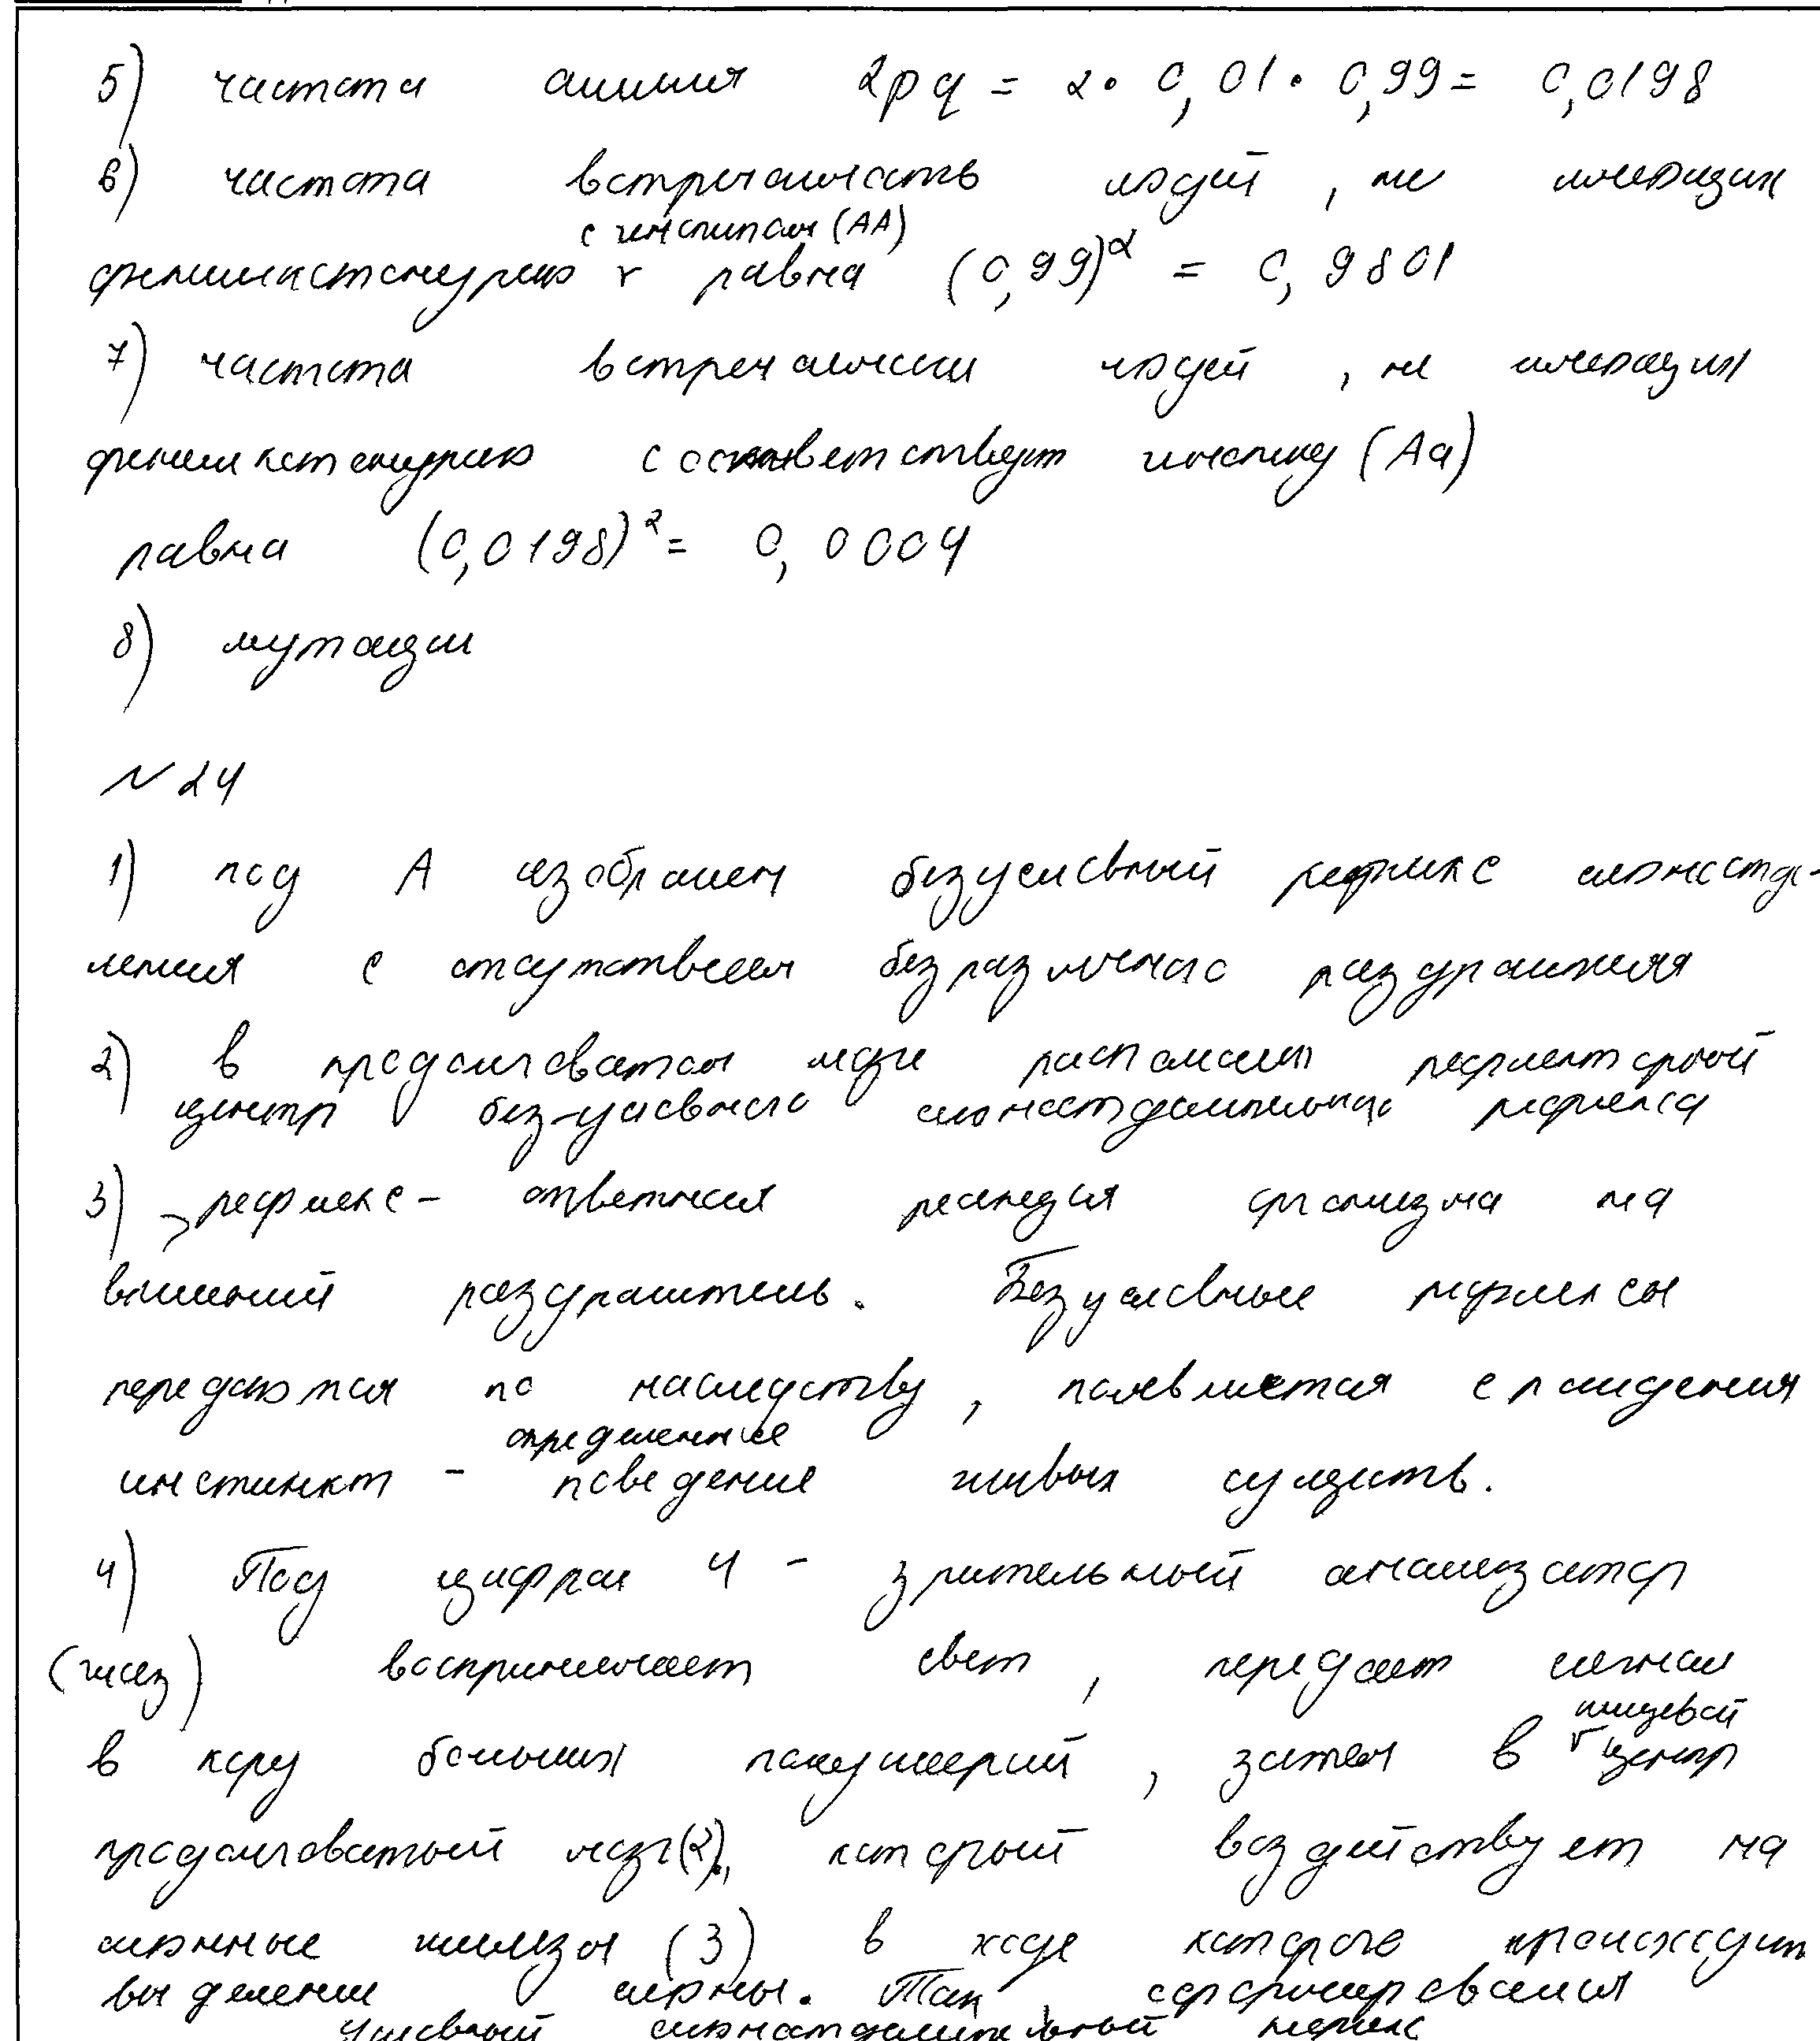 5) частота аллеля 2pq = 2 · 0,01 · 0,99 = 0,0198
6) частота встречаемость людей, не имеющих
с генотипом (АА)
фенилкетонурию равна (0,99)² = 0,9801
7) частота встречаемости людей, не имеющих
фенилкетонурию соответствует генотипу (Аа)
равна (0,0198)² = 0,0004
8) мутации
№24
1) под А изображен безусловный рефлекс слюноотде-
ления с отсутствием безразличного раздражения
2) в продолговатом мозге расположен рефлекторный
центр безусловного слюноотделительного рефлекса
3) рефлекс - ответная реакция организма на
внешний раздражитель. Безусловные рефлексы
передаются по наследству, появляется с рождения
определенное
инстинкт - поведение живых существ.
4) Под цифрой 4 - зрительный анализатор
(глаз) воспринимает свет, передает сигнал
пищевой
в кору больших полушарий, затем в центр
продолговатый мозг(2), который воздействует на
слюнные железы (3) в ходе которого происходит
выделение слюны. Так сформировался
условный слюноотделительный рефлекс